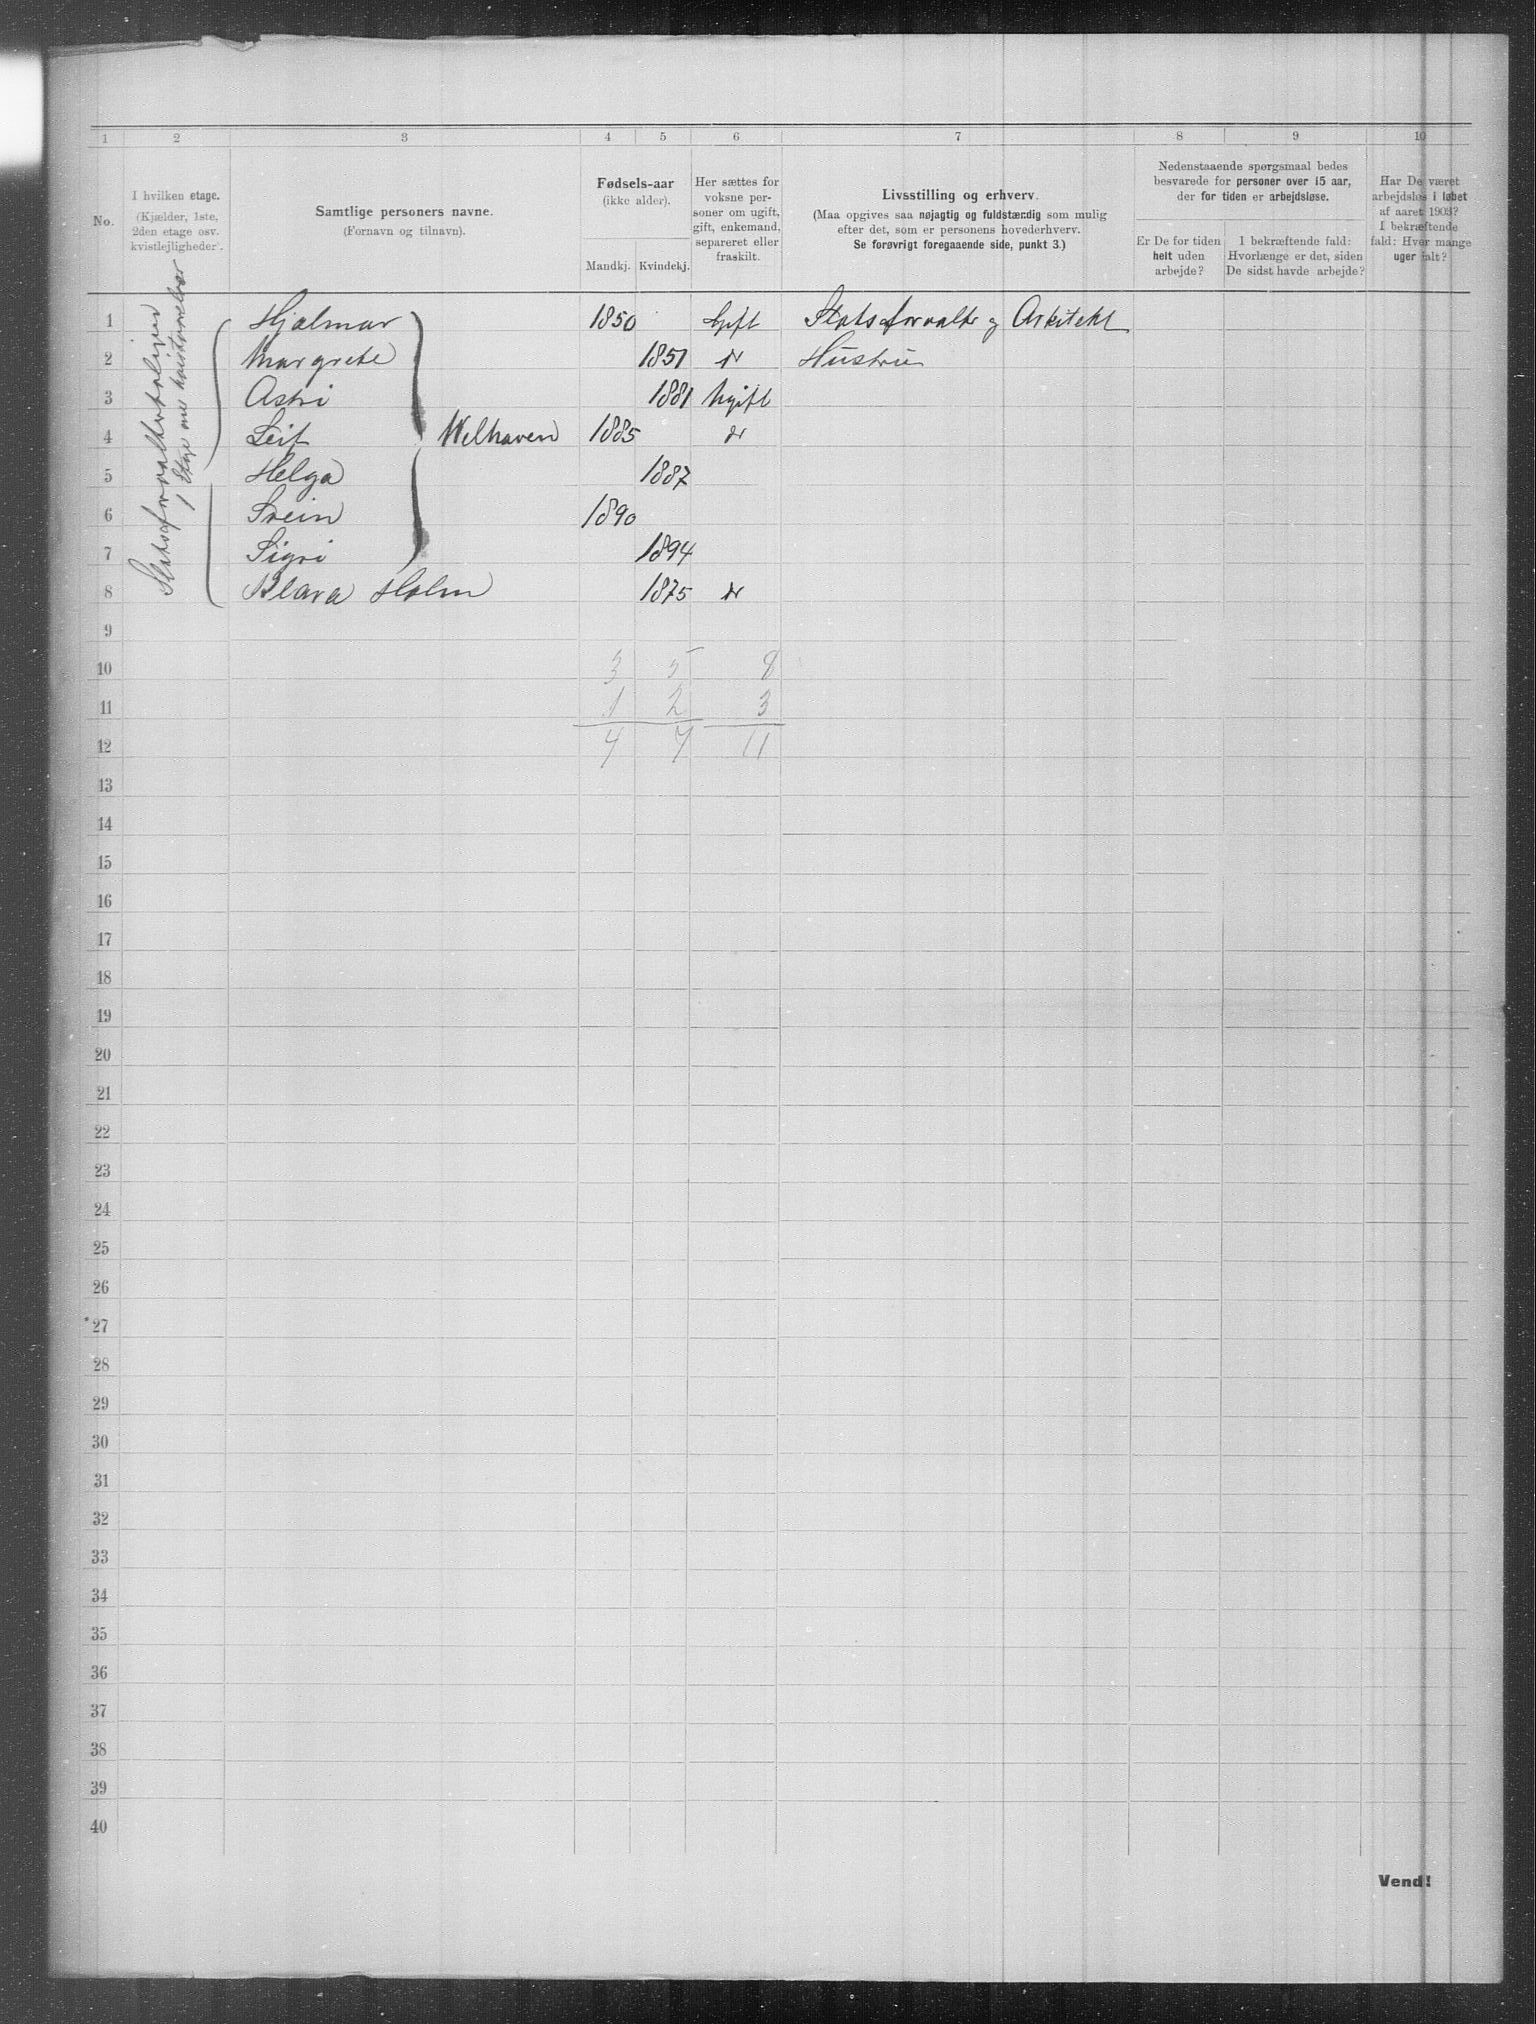 1 2 3 4 5 6 7 8 9 10
No.
I hvilken etage.
(Kjælder, 1ste,
2den etage osv.
kvistlejligheder.
Samtlige personers navne.
(Fornavn og tilnavn).
Fødsels-aar
(ikke alder).
Mandkj. Kvindekj.
Her sættes for
voksne per-
soner om ugift,
gift, enkemand,
separeret eller
fraskilt.
Livsstilling og erhverv.
(Maa opgives saa nøjagtig og fuldstændig som mulig
efter det, som er personens hovederhverv.
Se forøvrigt foregaaende side, punkt 3.)
Nedenstaaende spørgsmaal bedes
besvarede for personer over 15 aar,
der for tiden er arbejdsløse.
Er De for tiden
helt uden
arbejde?
I bekræftende fald:
Hvorlænge er det, siden
De sidst havde arbejde?
Har De været
arbejdsløs i løbet
af aaret 1903?
I bekræftende
fald: Hvor mange
uger ialt?
Slotsforvalterboligen
1 Etage
1 Hjalmar 1850 Gift Slotsforvalter og Arkitekt
2 Margrete 1851 dr Hustru
3 Astri 1881 Ugift
4 Leif Welhaven 1885 dr
5 Helga 1887
6 Svein 1890
7 Sigri 1894
8 Klara Holm 1875 dr
9
10 3 5 8
11 1 2 3
12 4 7 11
13
14
15
16
17
18
19
20
21
22
23
24
25
26
27
28
29
30
31
32
33
34
35
36
37
38
39
40
Vend!